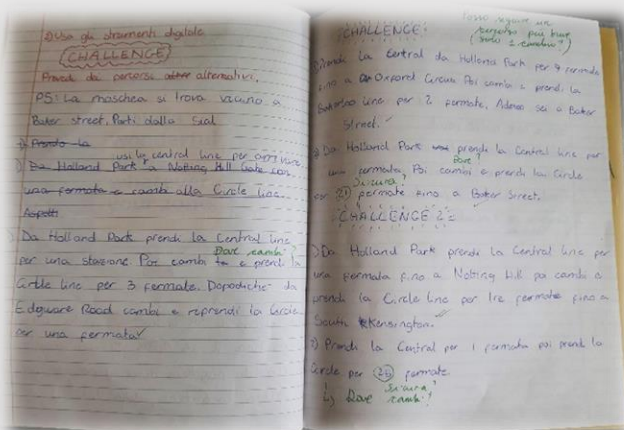 2) Usa gli strumenti digitale
CHALLENGE
Prevedi dei percorsi altre alternativi.
PS: La moschea si trova vicino a
Baker street. Parti dalla
1) Prendo la
usi la central line per arrivare
1) Da Holland Park a Notting Hill Gate con
una fermata e cambi alla Circle line.
Aspetti
Da Holland Park prendi la Central line
Dove cambi?
per una stazione. Poi cambi e prendi la
Circle line per 3 fermate. Dopodiché da
Edgware Road cambi e riprendi la Circle
per una fermata
Posso seguire un
percorso più breve
(solo 1 cambio?)
CHALLENGE:
Prendi la Central da Holland Park per fermate
fino a Oxford Circus Poi cambia e prendi la
Bakerloo line per 2 fermate, Adesso sei a Baker
Street.
2) Da Holland Park prendi la Central line per
Dove?
una fermata, Poi cambi e prendi la Circle
Sicura?
per 21 fermate fino a Baker Street.
CHALLENGE 2:
1) Da Holland Park prendi la Central line per
una fermata fino a Notting Hill poi cambia e
prendi la Circle line per tre fermate fino a
South Kensington.
2) Prendi la Central per 1 fermata poi prendi la
Circle per 26 fermate
sicura?
Dove cambi?